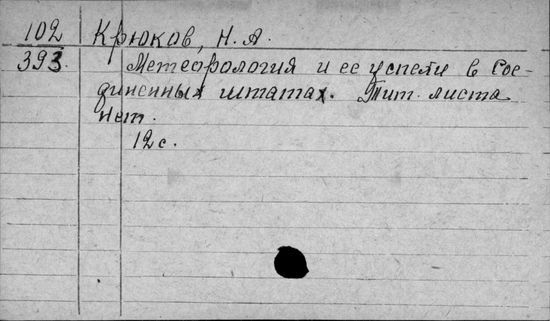 102 Крюков, Н. А.
393. Метеорология и ее успехи в Сое-
диненных штатах. Тит. листа
нет.
12 с.